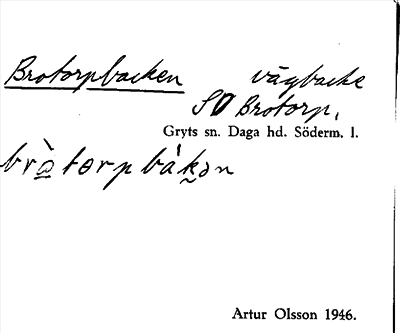 Brotorpbacken vägbacke
SO Brotorp.
Gryts sn. Daga hd. Söderm. l.
brò̲torpbák̬ən
Artur Olsson 1946.